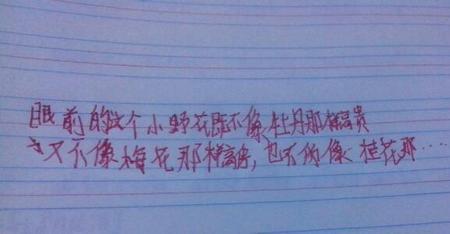 眼前的这个小野花既不像牡丹那样富贵
又不像梅花那样高傲,也不像桂花那…